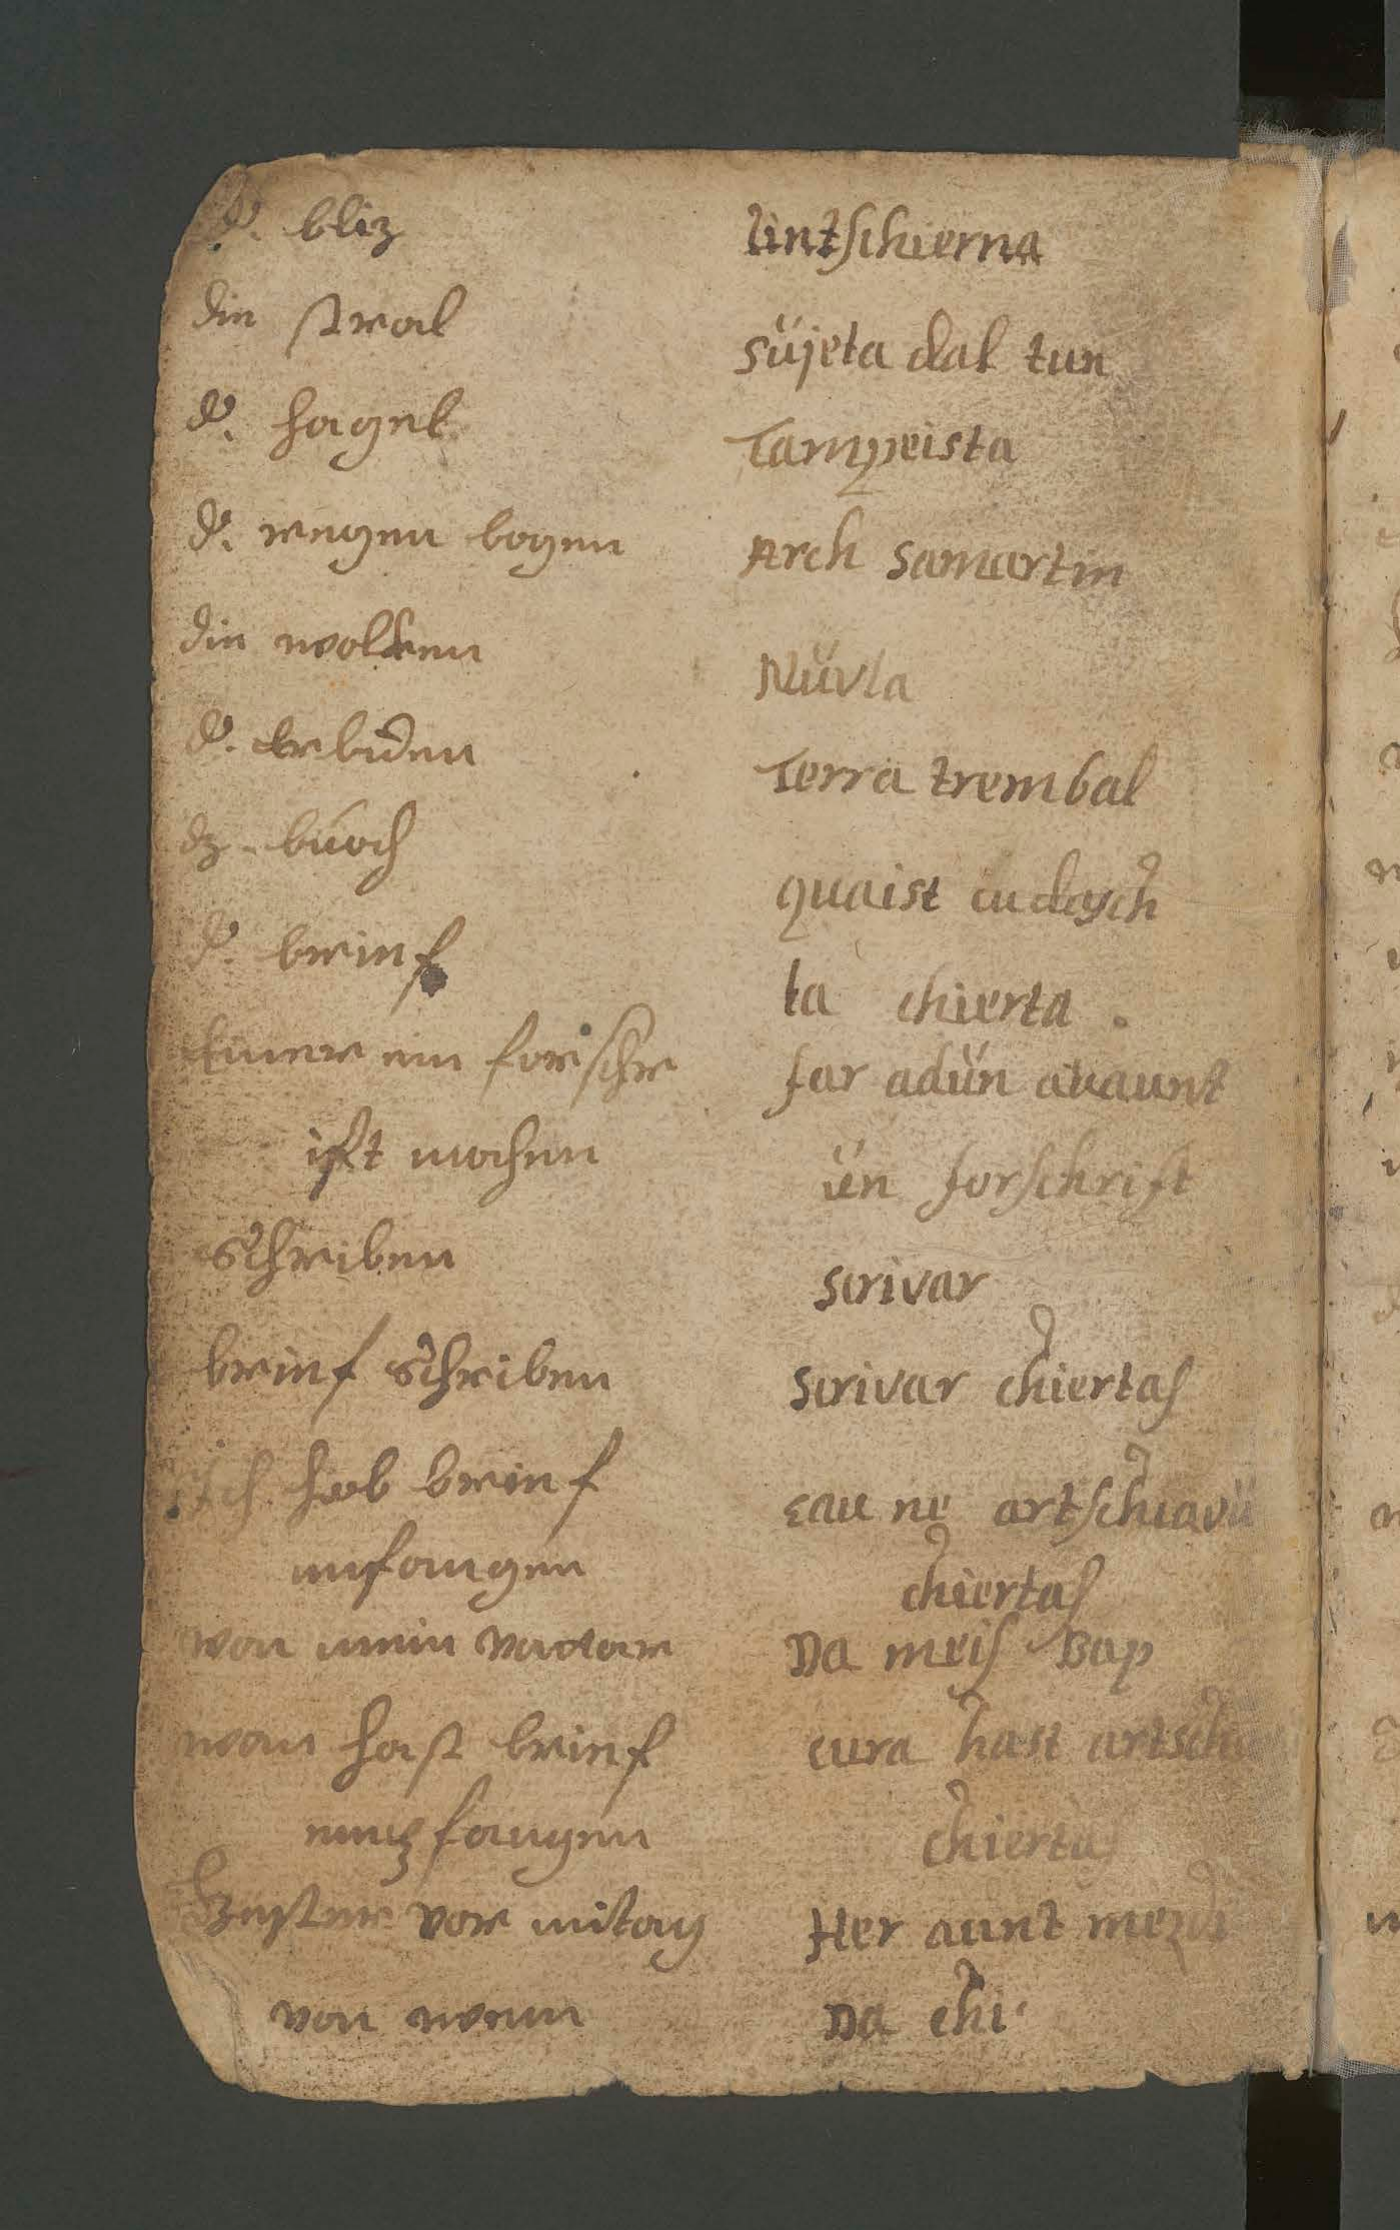 d. bliz lintschierna
die stral süjeta dal tun
d. hagel Tampeista
d. regen bogen Arch samartin
die wolken Nüvla
d. erbiden Terra trembal
dz buoch quaist cudesch
d. brief la chierta
einer ein forschr far adün avaunt
ift machen ün forschrift
schreiben scrivar
brief schreiben scrivar chiertas
ich hab brief eau ne artschiavü
unfangen chiertas
von mein vadter Da meis Bap
wan hast brief cura hast artsch
emzfangen chiertas
gester vor mitag Her aunt mezdi
von wem Da chi